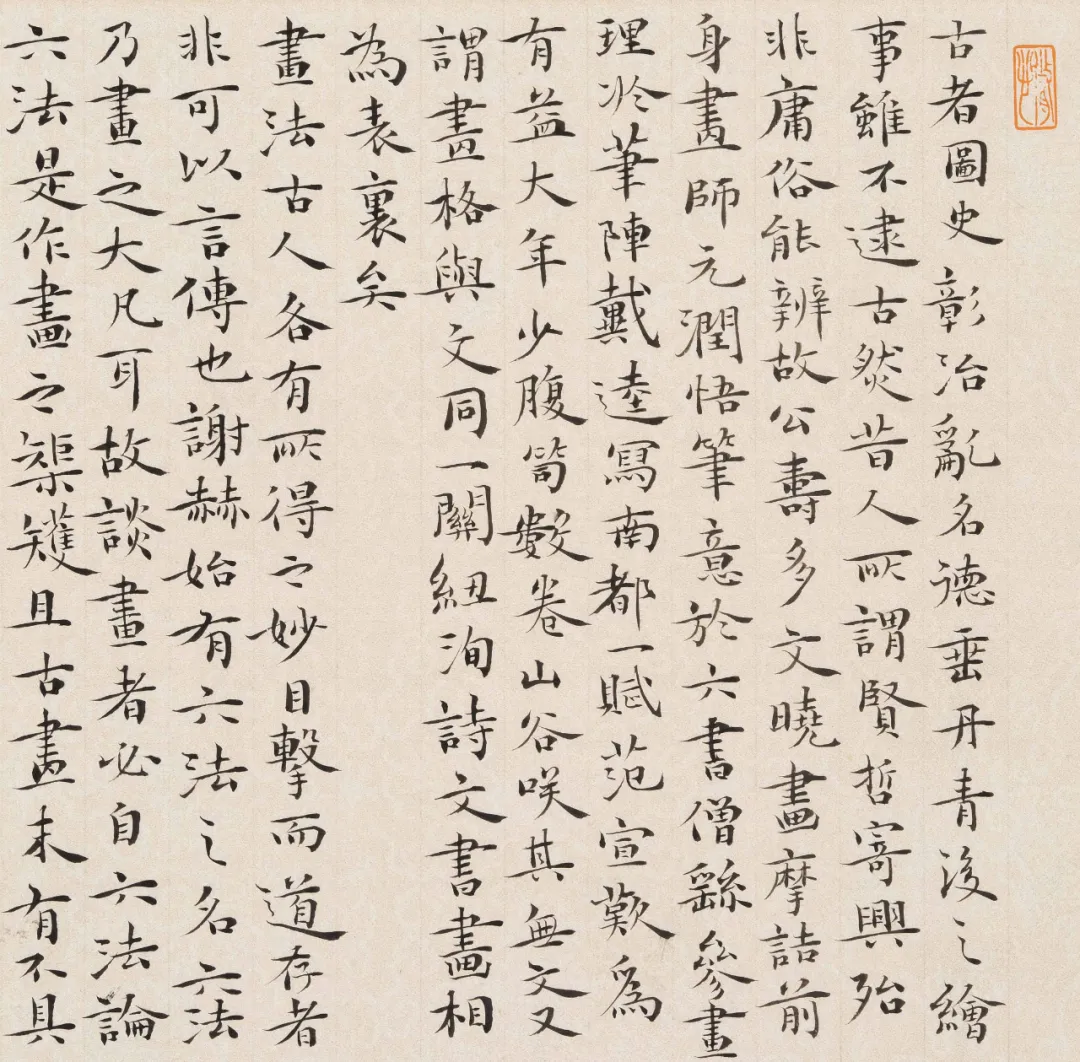 古者圖史彰治亂名德垂丹青後之繪
事雖不逮古然昔人所謂賢哲寄興殆
非庸俗能辨故公壽多文曉畫摩詰前
身畫師元潤悟筆意於六書僧繇參畫
理於筆陣戴逵寫南都一賦范宣歎爲
有益大年少腹笥數卷山谷咲其無文又
謂畫格與文同一關紐洵詩文書畫相
為表裏矣
畫法古人各有所得之妙目擊而道存者
非可以言傳也謝赫始有六法之名六法
乃畫之大凡耳故談畫者必自六法論
六法是作畫之榘矱且古畫未有不具